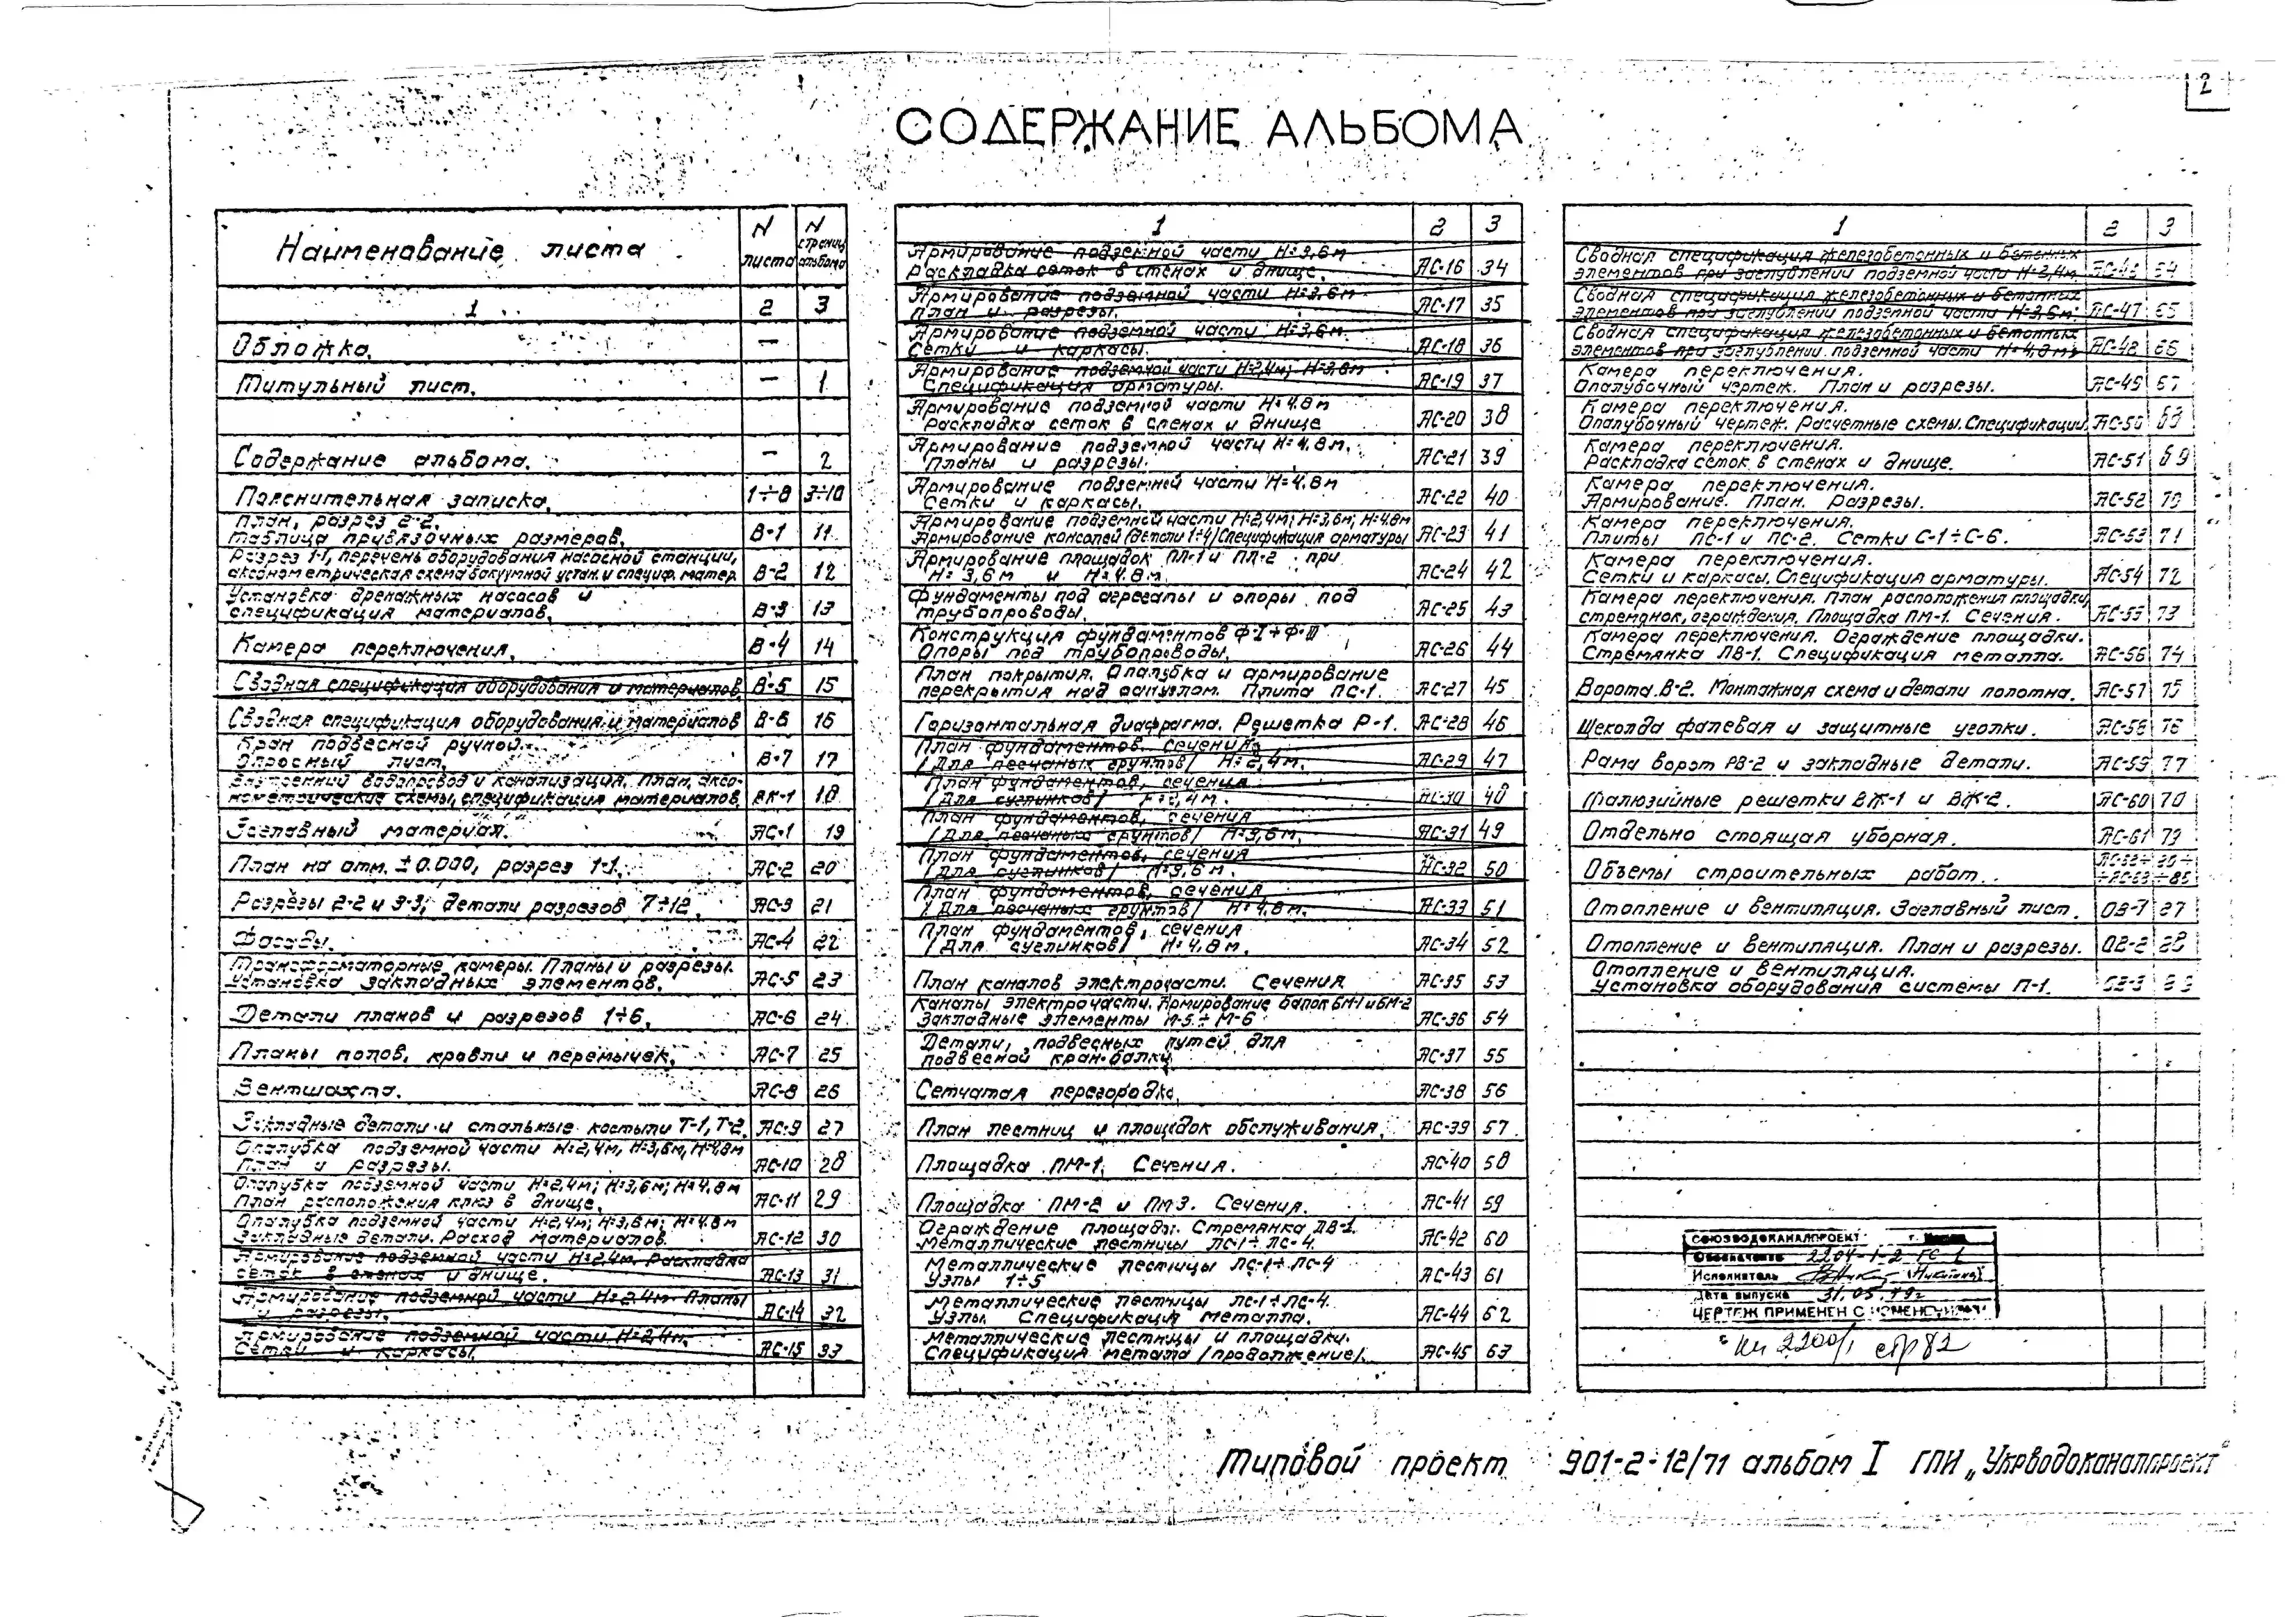 2
СОДЕРЖАНИЕ АЛЬБОМА
Наименование листа
N листа
N страниц альбома
1 2 3
Обложка. —
Титульный лист. — 1
Содержание альбома. — 2
Пояснительная записка. 1÷8 3÷10
План, разрез 2-2.
Таблица привязочных размеров. В-1 11
Разрез 1-1, перечень оборудования насосной станции,
аксонометрическая схема вакуумной устан. и специф. матер. В-2 12
Установка дренажных насосов и
спецификация материалов. В-3 13
Камера переключения. В-4 14
Сводная спецификация оборудования и материалов В-5 15
Сводная спецификация оборудования и материалов В-6 16
Кран подвесной ручной.
Опросный лист. В-7 17
Внутренний водопровод и канализация. План, аксо-
нометрические схемы, спецификация материалов ВК-1 18
Заглавный материал. АС-1 19
План на отм. ±0.000, разрез 1-1. АС-2 20
Разрезы 2-2 и 3-3; детали разрезов 7÷12. АС-3 21
Фасады. АС-4 22
Трансформаторные камеры. Планы и разрезы.
Установка закладных элементов. АС-5 23
Детали планов и разрезов 1÷6. АС-6 24
Планы полов, кровли и перемычек. АС-7 25
Вентшахта. АС-8 26
Закладные детали и стальные костыли Т-1, Т-2. АС-9 27
Опалубка подземной части Н=2,4м, Н=3,6м, Н=4,8м
План и разрезы. АС-10 28
Опалубка подземной части Н=2,4м; Н=3,6м; Н=4.8м
План расположения клюз в днище. АС-11 29
Опалубка подземной части Н=2,4м; Н=3,6м; Н=4.8м
Закладные детали. Расход материалов. АС-12 30
Армирование подземной части Н=2,4м. Раскладка
сеток в стенах и днище. АС-13 31
Армирование подземной части Н=2.4м. Планы
и разрезы. АС-14 32
Армирование подземной части Н=2,4м.
Сетки и каркасы. АС-15 33
1 2 3
Армирование подземной части Н=3,6м
Раскладка сеток в стенах и днище. АС-16 34
Армирование подземной части Н=3,6м
План и разрезы. АС-17 35
Армирование подземной части Н=3,6м.
Сетки и каркасы. АС-18 36
Армирование подземной части Н=2,4м; Н=3,6м
Спецификация арматуры. АС-19 37
Армирование подземной части Н=4.8м
Раскладка сеток в стенах и днище АС-20 38
Армирование подземной части Н=4,8м.
Планы и разрезы. АС-21 39
Армирование подземной части Н=4.8м
Сетки и каркасы. АС-22 40
Армирование подземной части Н=2,4м; Н=3,6м; Н=4.8м
Армирование консолей (детали 1÷4) Спецификация арматуры АС-23 41
Армирование площадок ПЛ-1 и ПЛ-2 при
Н=3,6м и Н=4.8м. АС-24 42
Фундаменты под агрегаты и опоры под
трубопроводы. АС-25 43
Конструкция фундаментов Ф-I÷Ф-III
Опоры под трубопроводы. АС-26 44
План покрытия. Опалубка и армирование
перекрытия над санузлом. Плита ПС-1. АС-27 45
Горизонтальная диафрагма. Решетка Р-1. АС-28 46
План фундаментов. сечения
/Для песчаных грунтов/ Н=2,4м. АС-29 47
План фундаментов, сечения
/Для суглинков/ Н=2,4м. АС-30 48
План фундаментов, сечения
/Для песчаных грунтов/ Н=3,6м. АС-31 49
План фундаментов, сечения
/Для суглинков/ Н=3,6м. АС-32 50
План фундаментов, сечения
/Для песчаных грунтов/ Н=4.8м. АС-33 51
План фундаментов, сечения
/Для суглинков/ Н=4,8м. АС-34 52
План каналов электрочасти. Сечения АС-35 53
Каналы электрочасти. Армирование балок БМ-1 и БМ-2
Закладные элементы М-5÷М-6 АС-36 54
Детали, подвесных путей для
подвесной кран-балки АС-37 55
Сетчатая перегородка. АС-38 56
План лестниц и площадок обслуживания. АС-39 57
Площадка ПМ-1. Сечения. АС-40 58
Площадка ПМ-2 и ПМ3. Сечения. АС-41 59
Ограждение площадки. Стремянка ЛВ-1.
Металлические лестницы ЛС-1÷ЛС-4. АС-42 60
Металлические лестницы ЛС-1÷ЛС-4
Узлы 1÷5 АС-43 61
Металлические лестницы ЛС-1÷ЛС-4.
Узлы. Спецификация металла. АС-44 62
Металлические лестницы и площадки.
Спецификация метала /продолжение/. АС-45 63
1 2 3
Сводная спецификация железобетонных и бетонных
элементов при заглублении подземной части Н=2,4м АС-46 64
Сводная спецификация железобетонных и бетонных
элементов при заглублении подземной части Н=3,6м АС-47 65
Сводная спецификация железобетонных и бетонных
элементов при заглублении подземной части Н=4,8м АС-48 66
Камера переключения.
Опалубочный чертеж. План и разрезы. АС-49 67
Камера переключения.
Опалубочный чертеж. Расчетные схемы. Спецификации АС-50 68
Камера переключения.
Раскладка сеток в стенах и днище. АС-51 69
Камера переключения.
Армирование. План. разрезы. АС-52 70
Камера переключения.
Плиты ПС-1 и ПС-2. Сетки С-1÷С-6. АС-53 71
Камера переключения.
Сетки и каркасы. Спецификация арматуры. АС-54 72
Камера переключения. План расположения площадки,
стремянок, ограждения. Площадка ПМ-1. Сечения. АС-55 73
Камера переключения. Ограждение площадки.
Стремянка ЛВ-1. Спецификация металла. АС-56 74
Ворота В-2. Монтажная схема и детали полотна. АС-57 75
Щеколда фалевая и защитные уголки. АС-58 76
Рама ворот РВ-2 и закладные детали. АС-59 77
Жалюзийные решетки ВЖ-1 и ВЖ-2. АС-60 78
Отдельно стоящая уборная. АС-61 79
Объемы строительных работ.
Отопление и вентиляция. Заглавный лист. ОВ-1 87
Отопление и вентиляция. План и разрезы. ОВ-2 88
Отопление и вентиляция.
Установка оборудования системы П-1. ОВ-3 89
СОЮЗВОДОКАНАЛПРОЕКТ г.
Обозначение 2204-1-2
Исполнитель
Дата выпуска 31.05.79г
ЧЕРТЕЖ ПРИМЕНЕН С
2200/1 стр 82
Типовой проект 901-2-12/71 альбом I ГПИ „Укрводоканалпроект"